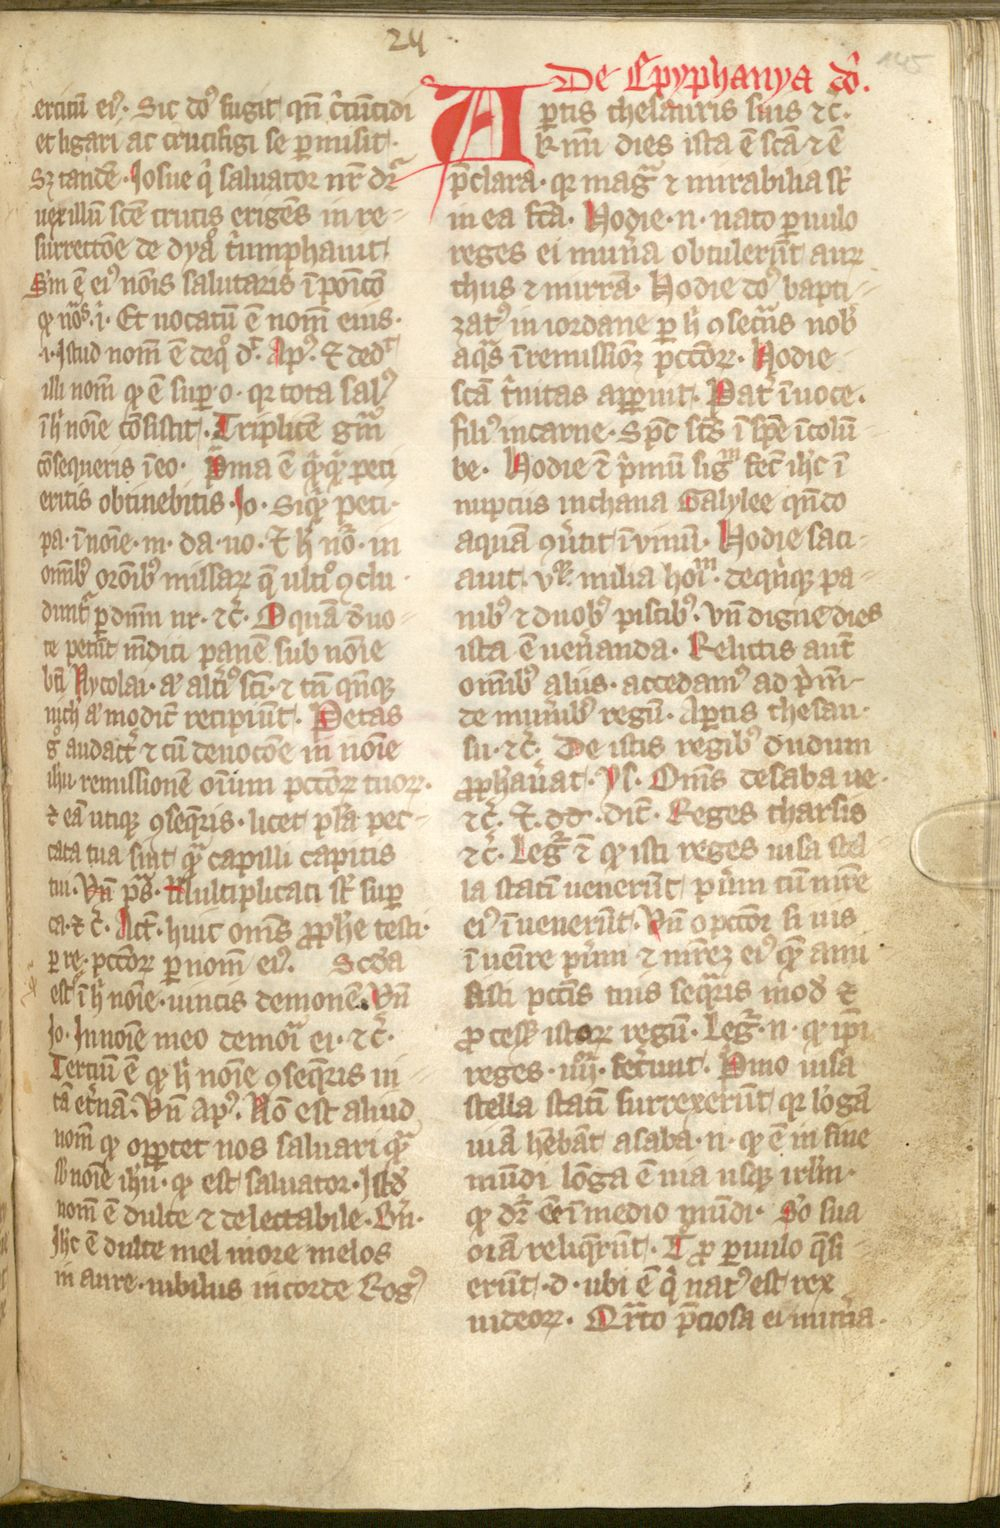 24
145
ercitū eiꝰ. Sic xp̄s fugit qn̄ c̄cūcidi
et ligari ac crucifigi se ꝑmisit.
Sꝫ tandē. Iosue q̇ saluator nr̄ dr̄
uexillū scē crucis erigēs in re-
surrectōe de dyaº t̓umphauit
Sm̄ ē eiꝰ nōis salutaris īpōicō
Et uocatū ē nom̄ eius.
.i. istud nom̄ ē
illi nom̄ qđ ē suꝑ .o. qꝛ tota salꝰ
ī hͦ nōie cōsistit. Triplicē
cōsequeris ī eo. Pͥma ē peti
eritis obtinebitis. Io. Siqͥͩ peti.
pa. ī nōie .m. da. uo. Et hͦ in
om̄ibꝰ orōibꝰ missaꝝ q̄ ultīo ɔclu-
dunt̄ ꝑ dn̄m nr̄. ⁊c̄. O quā deuo-
te petūt mēdici panē sub nōie
bt̄i Nycolai. aͭ alt̓iꝰ sc̄i. ⁊ tn̄
nich̄ aͭ modic̄ recipiūt. Petas
gͦ audact̓ ⁊ cū deuocōe in nōie
ihū remissionē oīum pcc̄oꝝ tuoꝝ.
⁊ eā utiqꝫ ɔseqr̄is. licet pl̄a pec-
cata tua sint qͣ̄ capilli capitis
tui. Vn̄ pͣs. Multiplicati st̄ suꝑ
ca. ⁊c̄. Act̄. huic om̄s ꝓphē testi.
ꝑ re. pcc̄oꝝ ꝑ nom̄ eiꝰ. Scd̄a
est ī hͦ nōie. uincis demonē. Vn̄
Io. In nōie meo demoīa ei. ⁊c̄.
Tercīū ē qđ hͦ nōie ɔseqr̄is ui-
tā et̓nā. Vn̄ Apꝰ. Nō est aliud
nom̄ qđ oportet nos saluari
sb̄ nōie ihū. qđ est saluator. Istđ
nom̄ ē dulce ⁊ delectabile. Br̄n.
Ihc̄ ē dulce mel in ore melos
in aure. iubilus in corde Rogꝰ
De Epyphanya dn̄i.
Apertis thesauris suis ⁊c̄.
kmi dies ista ē sc̄a ⁊ ē
p̄clara. qꝛ magͣ ⁊ mirabilia st̄
in ea fc̄a. Hodie .n. nato ꝑuulo
reges ei mun̓a obtulerūt auꝝ
thus ⁊ mirrā. Hodie xp̄s bapti-
zatꝰ in iordane ꝑ hͦ ɔsecr̄ās nob̄
aqͣs ī remissiōꝫ pcc̄oꝝ. Hodie
sc̄a t̓nitas apparuit. Pat̓ ī uoce.
filiꝰ in carne. Spc̄ sc̄s ī spē ī colū-
be. Hodie ⁊ p̓mū sigͫ fec̄ ihc̄ ī
nuptus in chana Galylee qn̄do
aquā ɔu̓tit ī vinū. Hodie saci-
auit. vͦ. milia hoīͫ. de qnqꝫ pa-
nibꝰ ⁊ duobꝰ piscibꝰ. Vn̄ digne dies
ista ē uen̓anda. Relictis aut̄
om̄ibꝰ aliis. accedamꝰ ad p̓m̄
de mun̓ibꝰ regū. Aꝑtis thesau-
su. ⁊c̄. De istis regibꝰ dudum
ꝓphau̓at. Ys. Om̄s de saba ue.
⁊c̄. Et dd̄. dic̄. Reges tharsis
⁊c̄. Legͥ ⁊ qđ isti reges uisa stel
la statī uenerūt pu̓m cū mr̄e
eiꝰ īuenerūt. Vn̄ o pcc̄or si uis
īueīre pu̓m ⁊ mr̄eꝫ eiꝰ qͣ̄ ami
sisti pcc̄is tuis seqr̄is mod̄ ⁊
ꝓcess istoꝝ regū. Legͥ .n. qđ ip̄i
reges .iiijͦ. fec̓unt. Pͥmo uisa
stella statī surrexerūt qꝛ lōgā
uiā hēbāt a saba .n. qđ ē in fine
mūdi lōga ē uia usqꝫ irl̄m.
qđ dr̄ ēē ī medio mūdi. Scͦ sua
oīa reliqr̄unt. Tͦ ꝓ ꝑuulo q̄si
erūt. d. ubi ē q̇ natꝰ est rex
iudeoꝝ. Qͣrto p̄ciosa ei mun̓a.